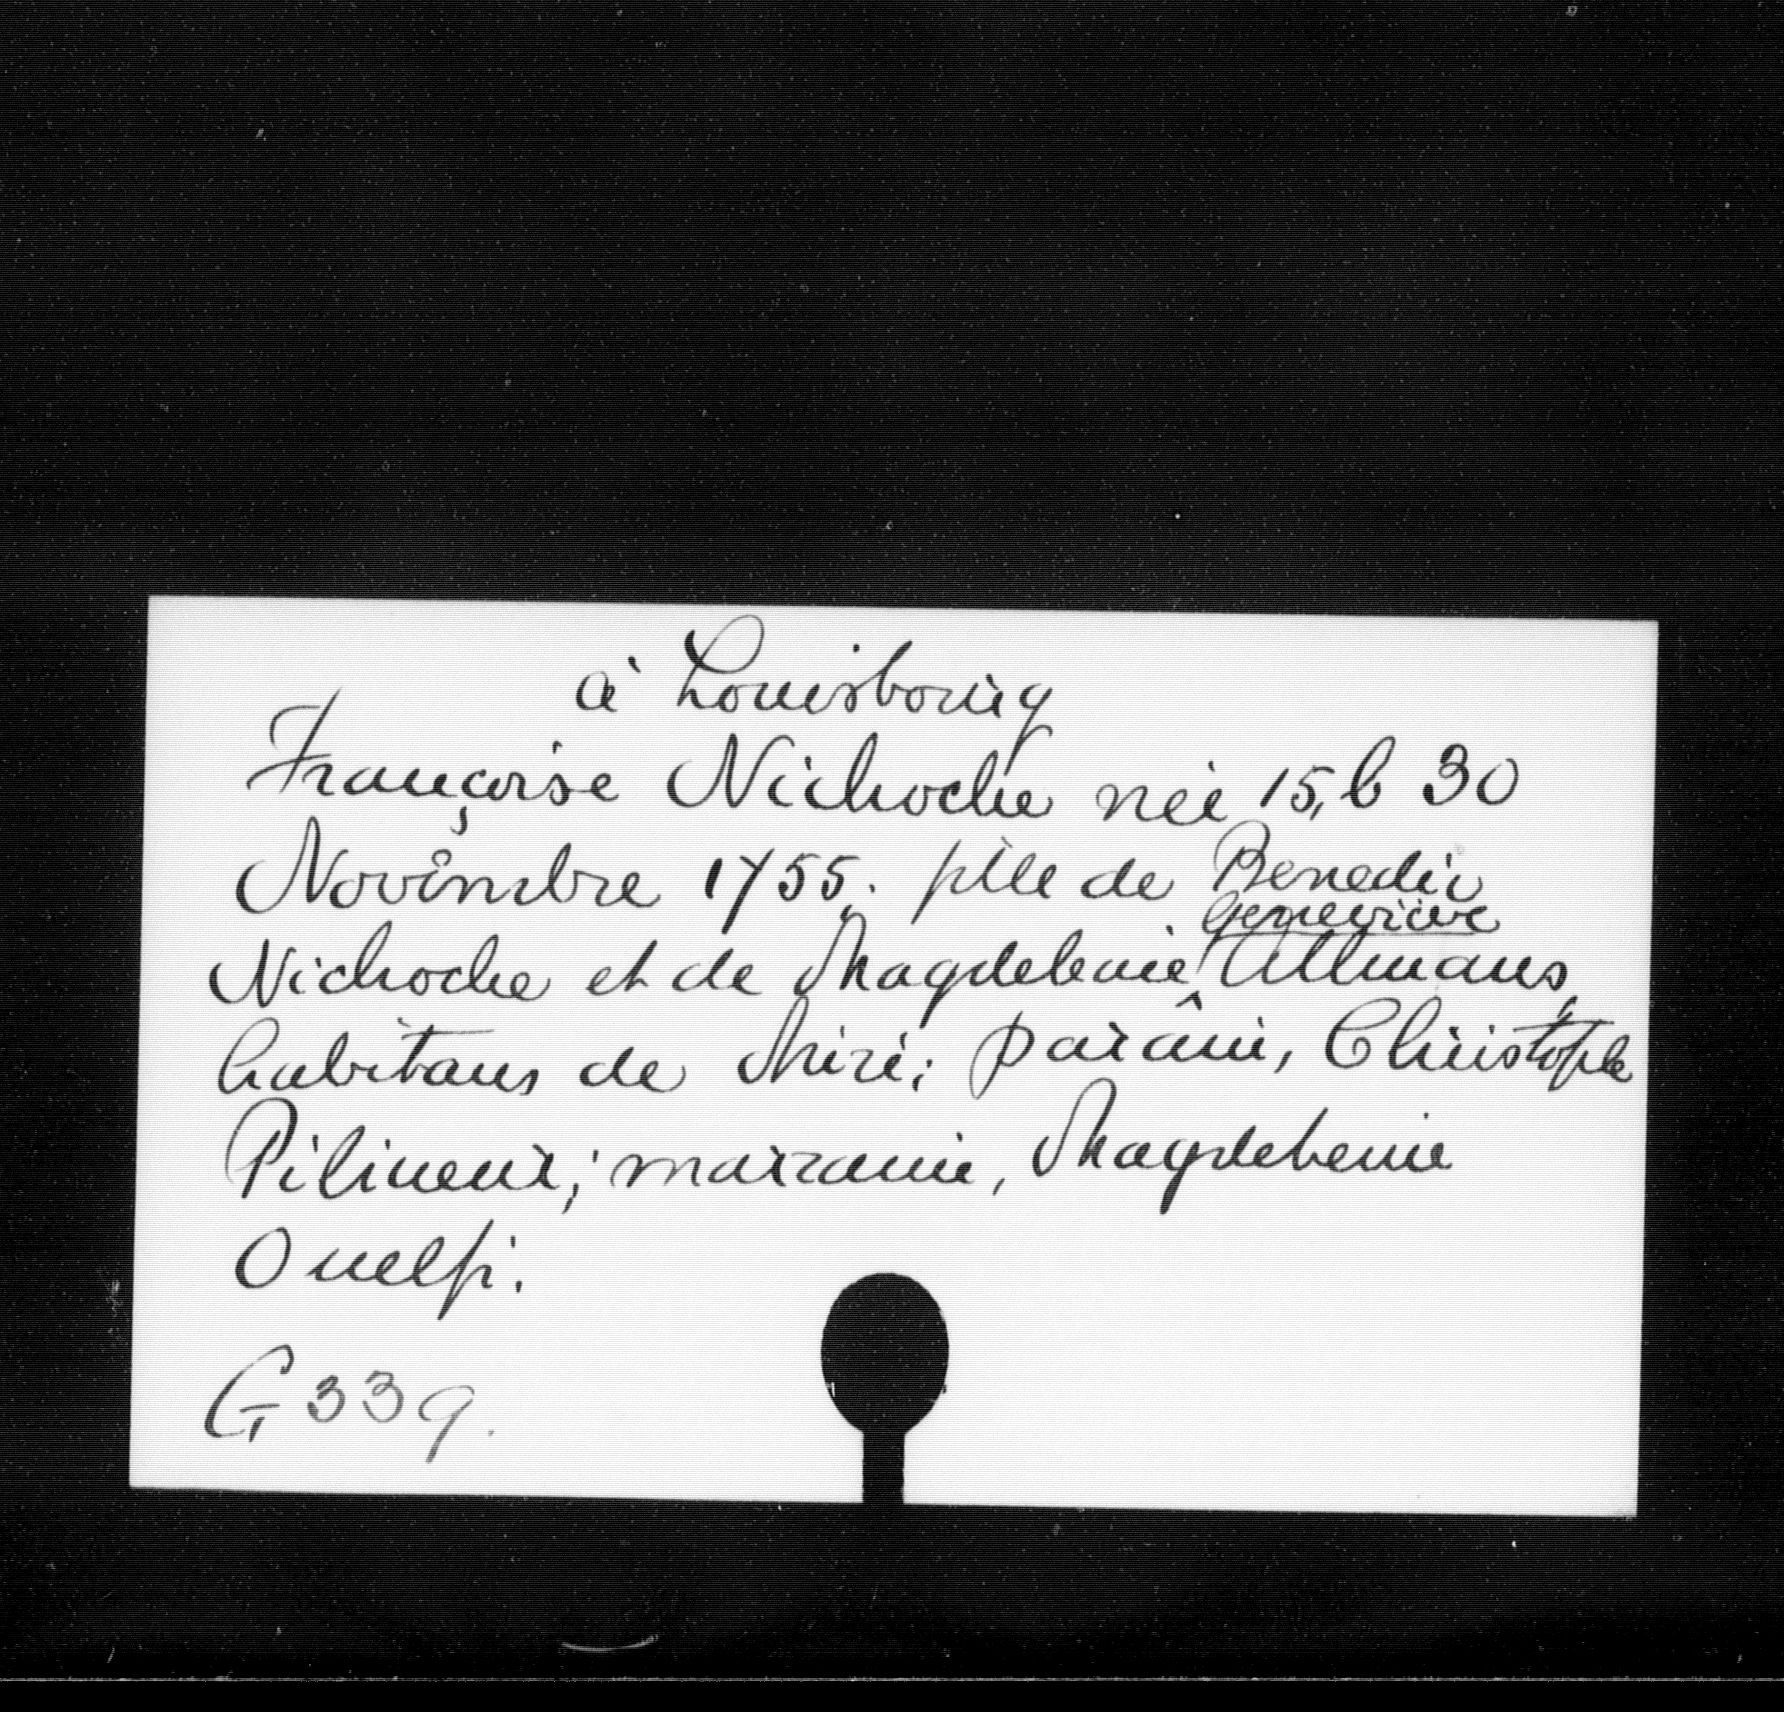 à Louisbourg
Françoise Nichoche née 15, b 30
Novembre 1755. fille de Benedic
Geneviève
Nichoche et de Magdeleine Allmans,
habitans de Miré; parain, Christophe
Pilineux; marraine, Magdeleine
Ouelfi.
G 339.